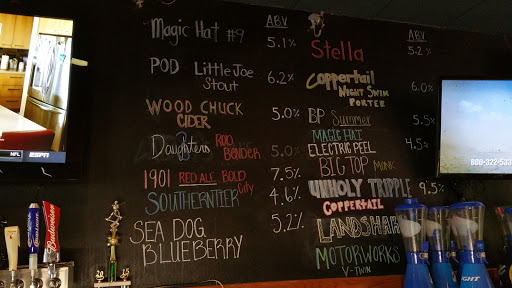 ABV
Magic Hat #9 5.1%
POD Little Joe 6.2%
Stout
WOOD CHUCK 5.0%
CIDER
Daughters Rod
Bender 5.0%
1901 RED ALE BOLD 7.5%
City
SOUTHERNTIER 4.6%
SEA DOG 5.2%
BLUEBERRY
ABV
Stella 5.2%
Coppertail 6.0%
NIGHT SWIM
PORTER
BP Summer 5.5%
MAGIC HAT 4.5%
ELECTRIC PEEL
BIG TOP MONK
UNHOLY TRIPPLE 9.5%
COPPERTAIL
LANDSHARK
MOTORWORKS
V-TWIN
NFL ESPN
800-322-533
Budweiser
LIGHT